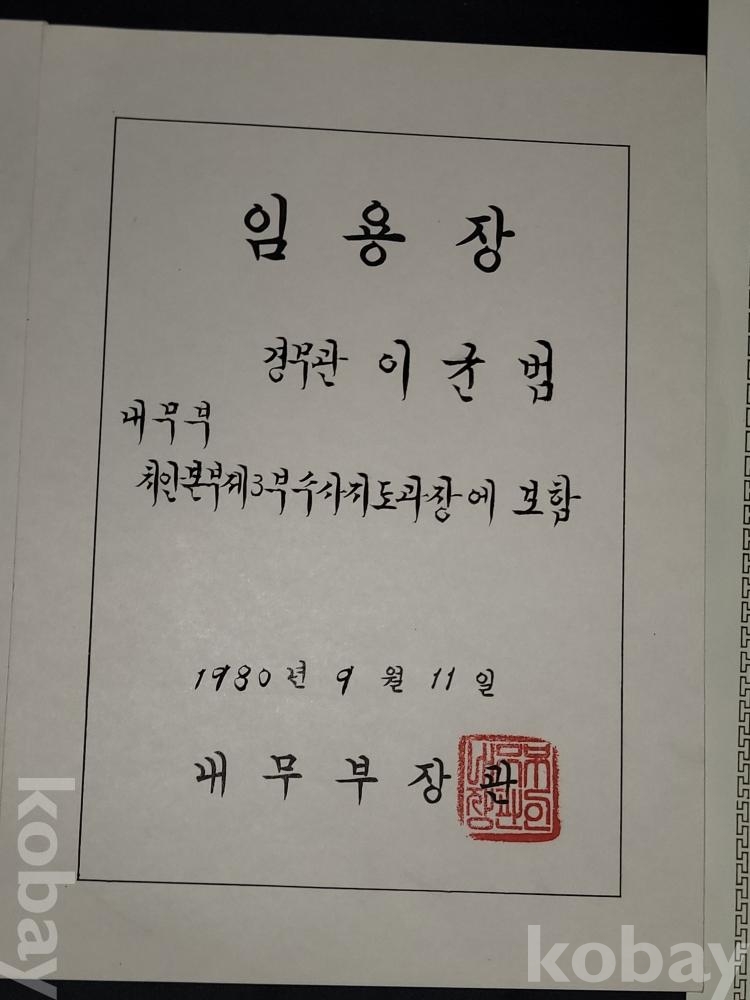 임용장
경무관 이균범
내무부
치안본부제3부수사지도과장에 보함
1980년 9월 11일
내무부장관
kobay
kobay